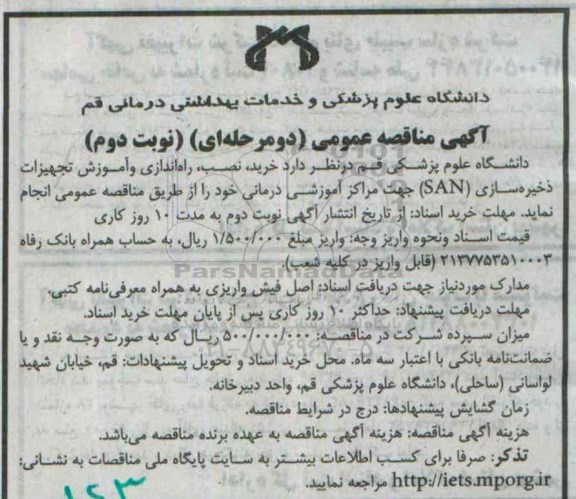 دانشگاه علوم پزشکی و خدمات بهداشتی درمانی قم
آگهی مناقصه عمومی (دومرحله‌ای) (نوبت دوم)
دانشگاه علوم پزشکی قم درنظر دارد خرید، نصب، راه‌اندازی وآموزش تجهیزات
ذخیره‌سازی (SAN) جهت مراکز آموزشی درمانی خود را از طریق مناقصه عمومی انجام
نماید. مهلت خرید اسناد: از تاریخ انتشار آگهی نوبت دوم به مدت ۱۰ روز کاری
قیمت اسناد ونحوه واریز وجه: واریز مبلغ ۱/۵۰۰/۰۰۰ ریال، به حساب همراه بانک رفاه
۲۱۳۷۷۵۳۵۱۰۰۰۳ (قابل واریز در کلیه شعب).
ParsNamadData
مدارک موردنیاز جهت دریافت اسناد: اصل فیش واریزی به همراه معرفی‌نامه کتبی.
مهلت دریافت پیشنهاد: حداکثر ۱۰ روز کاری پس از پایان مهلت خرید اسناد.
میزان سپرده شرکت در مناقصه: ۵۰۰/۰۰۰/۰۰۰ ریال که به صورت وجه نقد و یا
ضمانت‌نامه بانکی با اعتبار سه ماه. محل خرید اسناد و تحویل پیشنهادات: قم، خیابان شهید
لواسانی (ساحلی)، دانشگاه علوم پزشکی قم، واحد دبیرخانه.
زمان گشایش پیشنهادها: درج در شرایط مناقصه.
هزینه آگهی مناقصه: هزینه آگهی مناقصه به عهده برنده مناقصه می‌باشد.
تذکر: صرفا برای کسب اطلاعات بیشتر به سایت پایگاه ملی مناقصات به نشانی:
http://iets.mporg.ir مراجعه نمایید.
۱۲۳